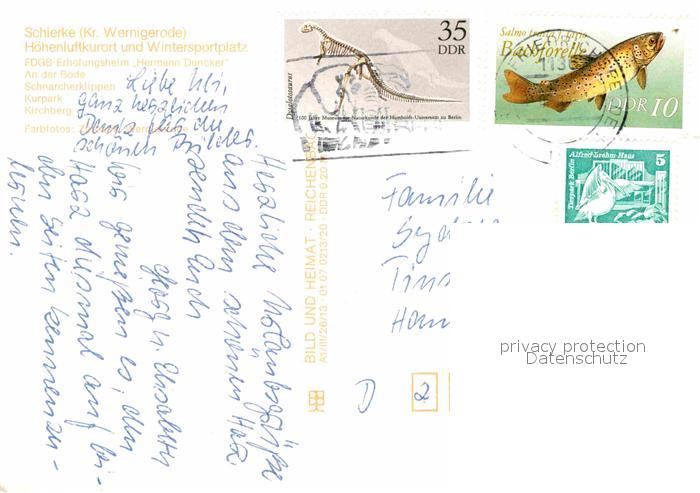 Schierke (Kr. Wernigerode)
Höhenluftkurort und Wintersportplatz
FDGB-Erholungsheim „Hermann Duncker"
An der Bode
Schnarcherklippen
Kurpark
Kirchberg
Farbfotos:
Liebe
ganz herzlichen
Dank für die
schönen Bilder.
Herzliche Urlaubsgrüße
aus dem schönen Harz
sendet Euch
u. Elisabeth
Wir genießen es, den
Harz diesmal auf bei-
den Seiten kennenzu-
lernen.
BILD UND HEIMAT · REICHENBACH
A1/III/26/13 · 01 07 0213/20 · DDR 0.20
35
DDR
Diplodocus
100 Jahre Museum für Naturkunde der Humboldt-Universität zu Berlin
Salmo trutta f. fario
Bachforelle
DDR 10
Alfred-Brehm-Haus
Tierpark Berlin
5
DDR
Familie
D
2
privacy protection
Datenschutz